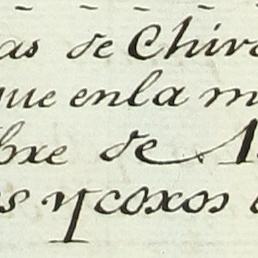 as de Chir
que enla m
bre de 1
s y coxos